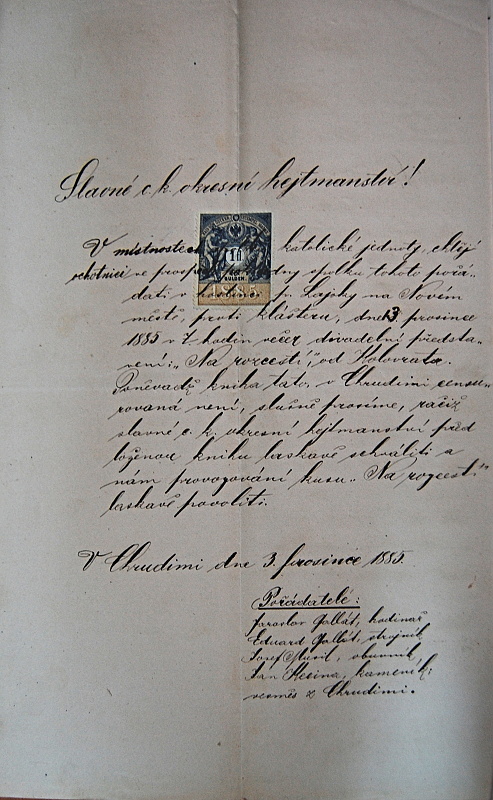 Slavné c. k. okresní hejtmanství!
V místnostech katolické jednoty, chtějí
ochotníci ve prospěch spolku tohoto pořá-
dati v hostinci p. Lajsky na Novém
městě, proti klášteru, dne 3. prosince
1885 v 7. hodin večer divadelní představ-
vení: „Na rozcestí“, od Kolovrata.
Poněvadž kniha tato, v Chrudimi censu-
rovaná není, slušně prosíme, račiž
slavné c. k. okresní hejtmanství před-
loženou knihu laskavě schváliti a
nám provozování kusu „Na rozcestí“
laskavě povoliti.
1 fl
GULDEN
1885
V Chrudimi dne 3. prosince 1885.
Pořádatelé:
Jaroslav Gallát, hodinář
Eduard Gallát, strojník
Josef Musil, obuvník,
Jan Hesina, kameník;
vesměs z Chrudimi.